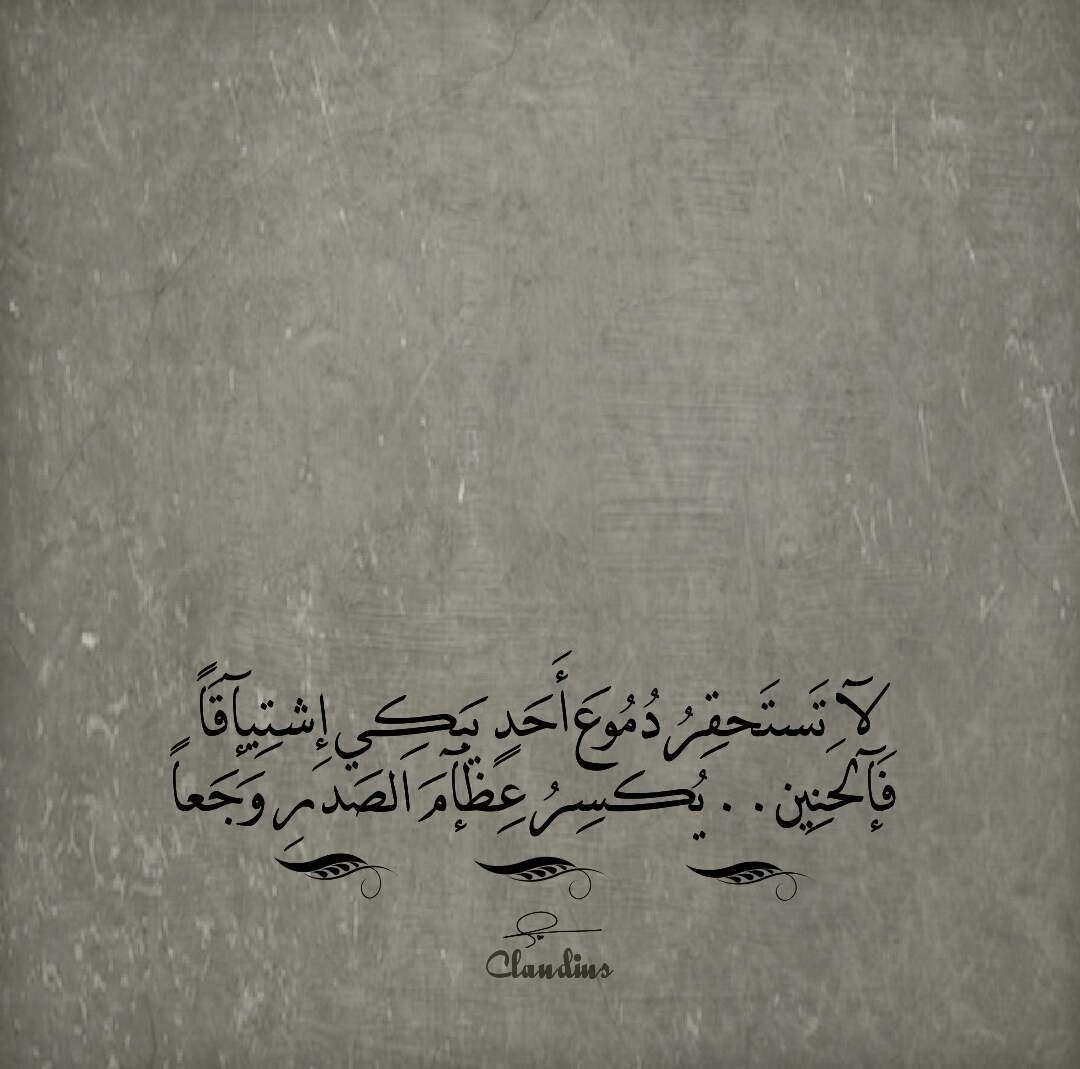 لآِ تَستَحقِرُ دُمُوعَ أَحَدٍ يَبكِي إِشتِيآقَاً
فَإآلحَنِين . . يُكسِرُ عِظآمَ الَصَدرِ وَجَعاً
Claudius